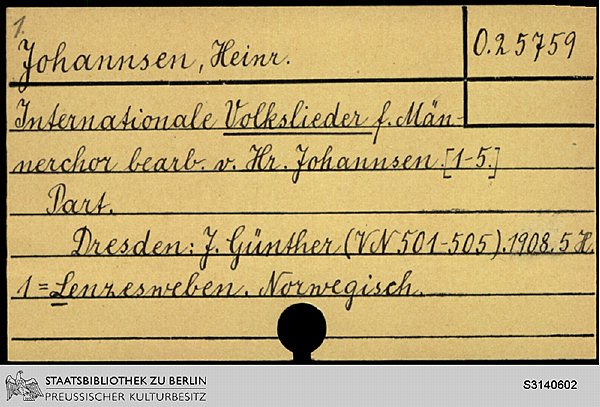 1.
Johannsen, Heinr.
O.25759
Internationale Volkslieder f. Män-
nerchor bearb. v. Hr. Johannsen. [1-5.]
Part.
Dresden: J. Günther (VN 501-505). 1908. 5 H.
1 = Lenzesweben. Norwegisch.
STAATSBIBLIOTHEK ZU BERLIN
PREUSSISCHER KULTURBESITZ
S3140602